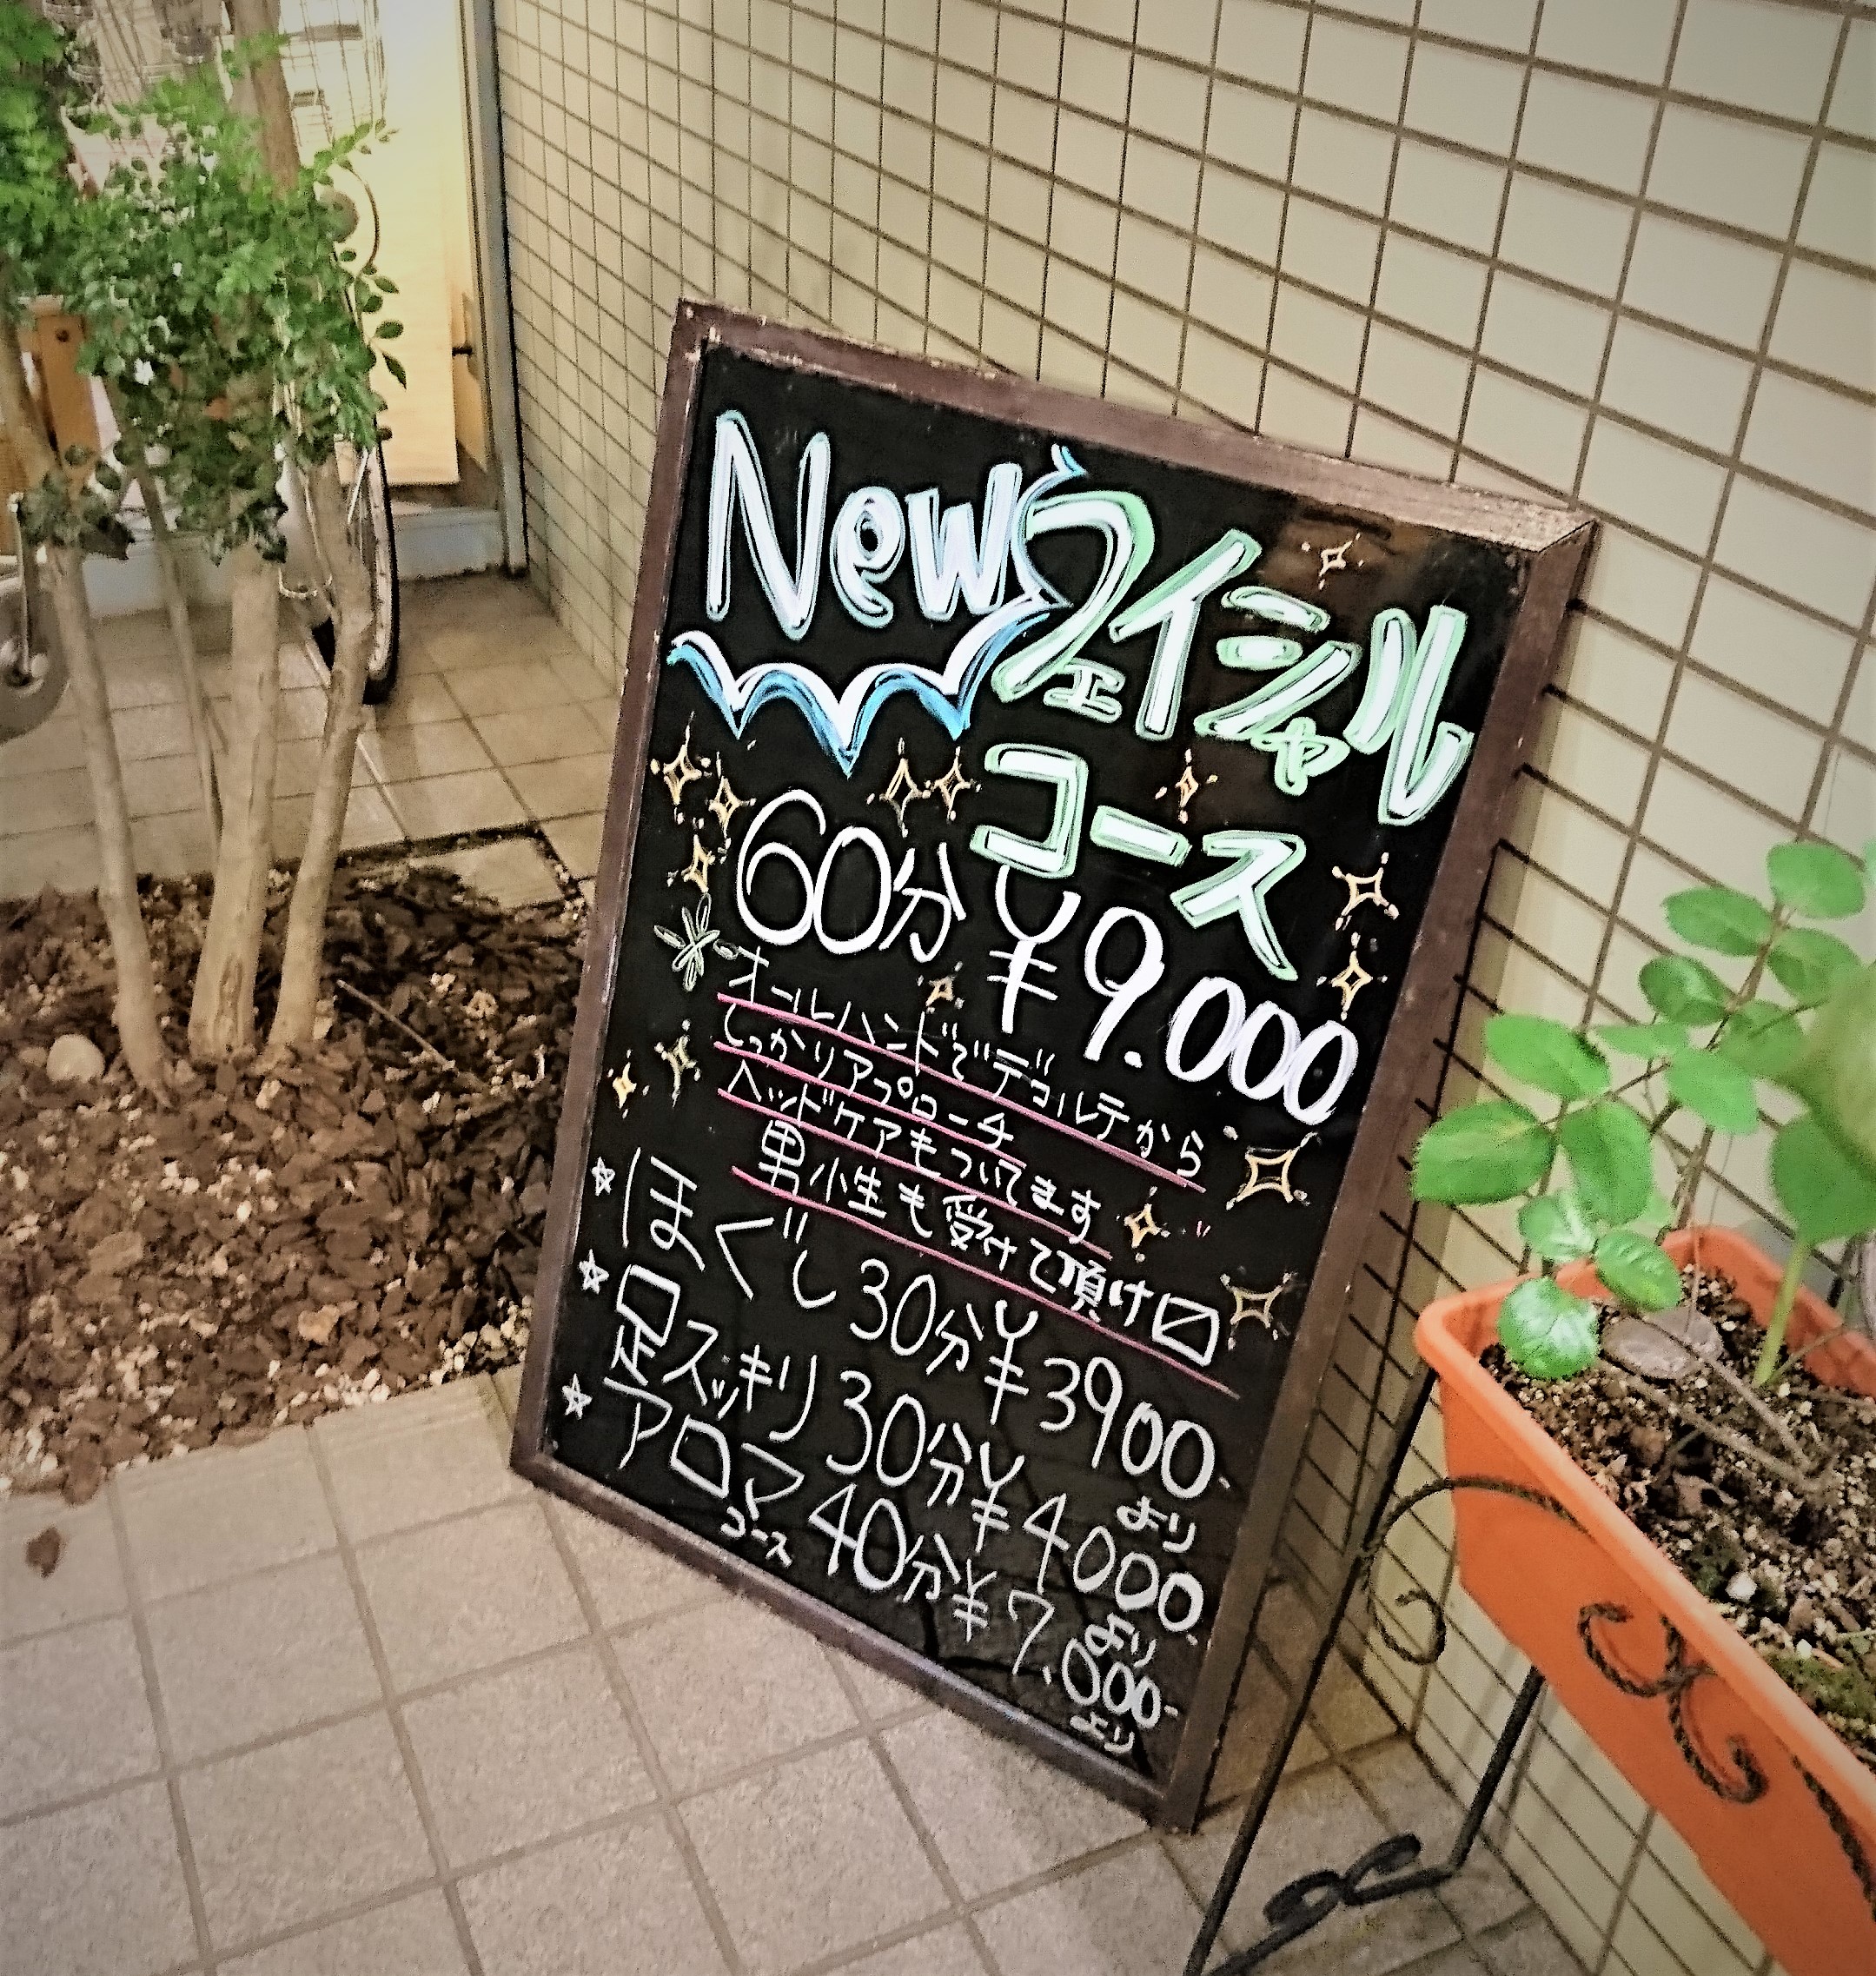 New フェイシャル
コース
60分 ¥9.000
オールハンドでデコルテから
しっかりアプローチ
ヘッドケアもついてます
男小生も受けて頂け〼
☆ほぐし 30分 ¥3900-
より
☆足スッキリ 30分 ¥4000-
より
☆アロマ 40分 ¥7.000-
コース
より